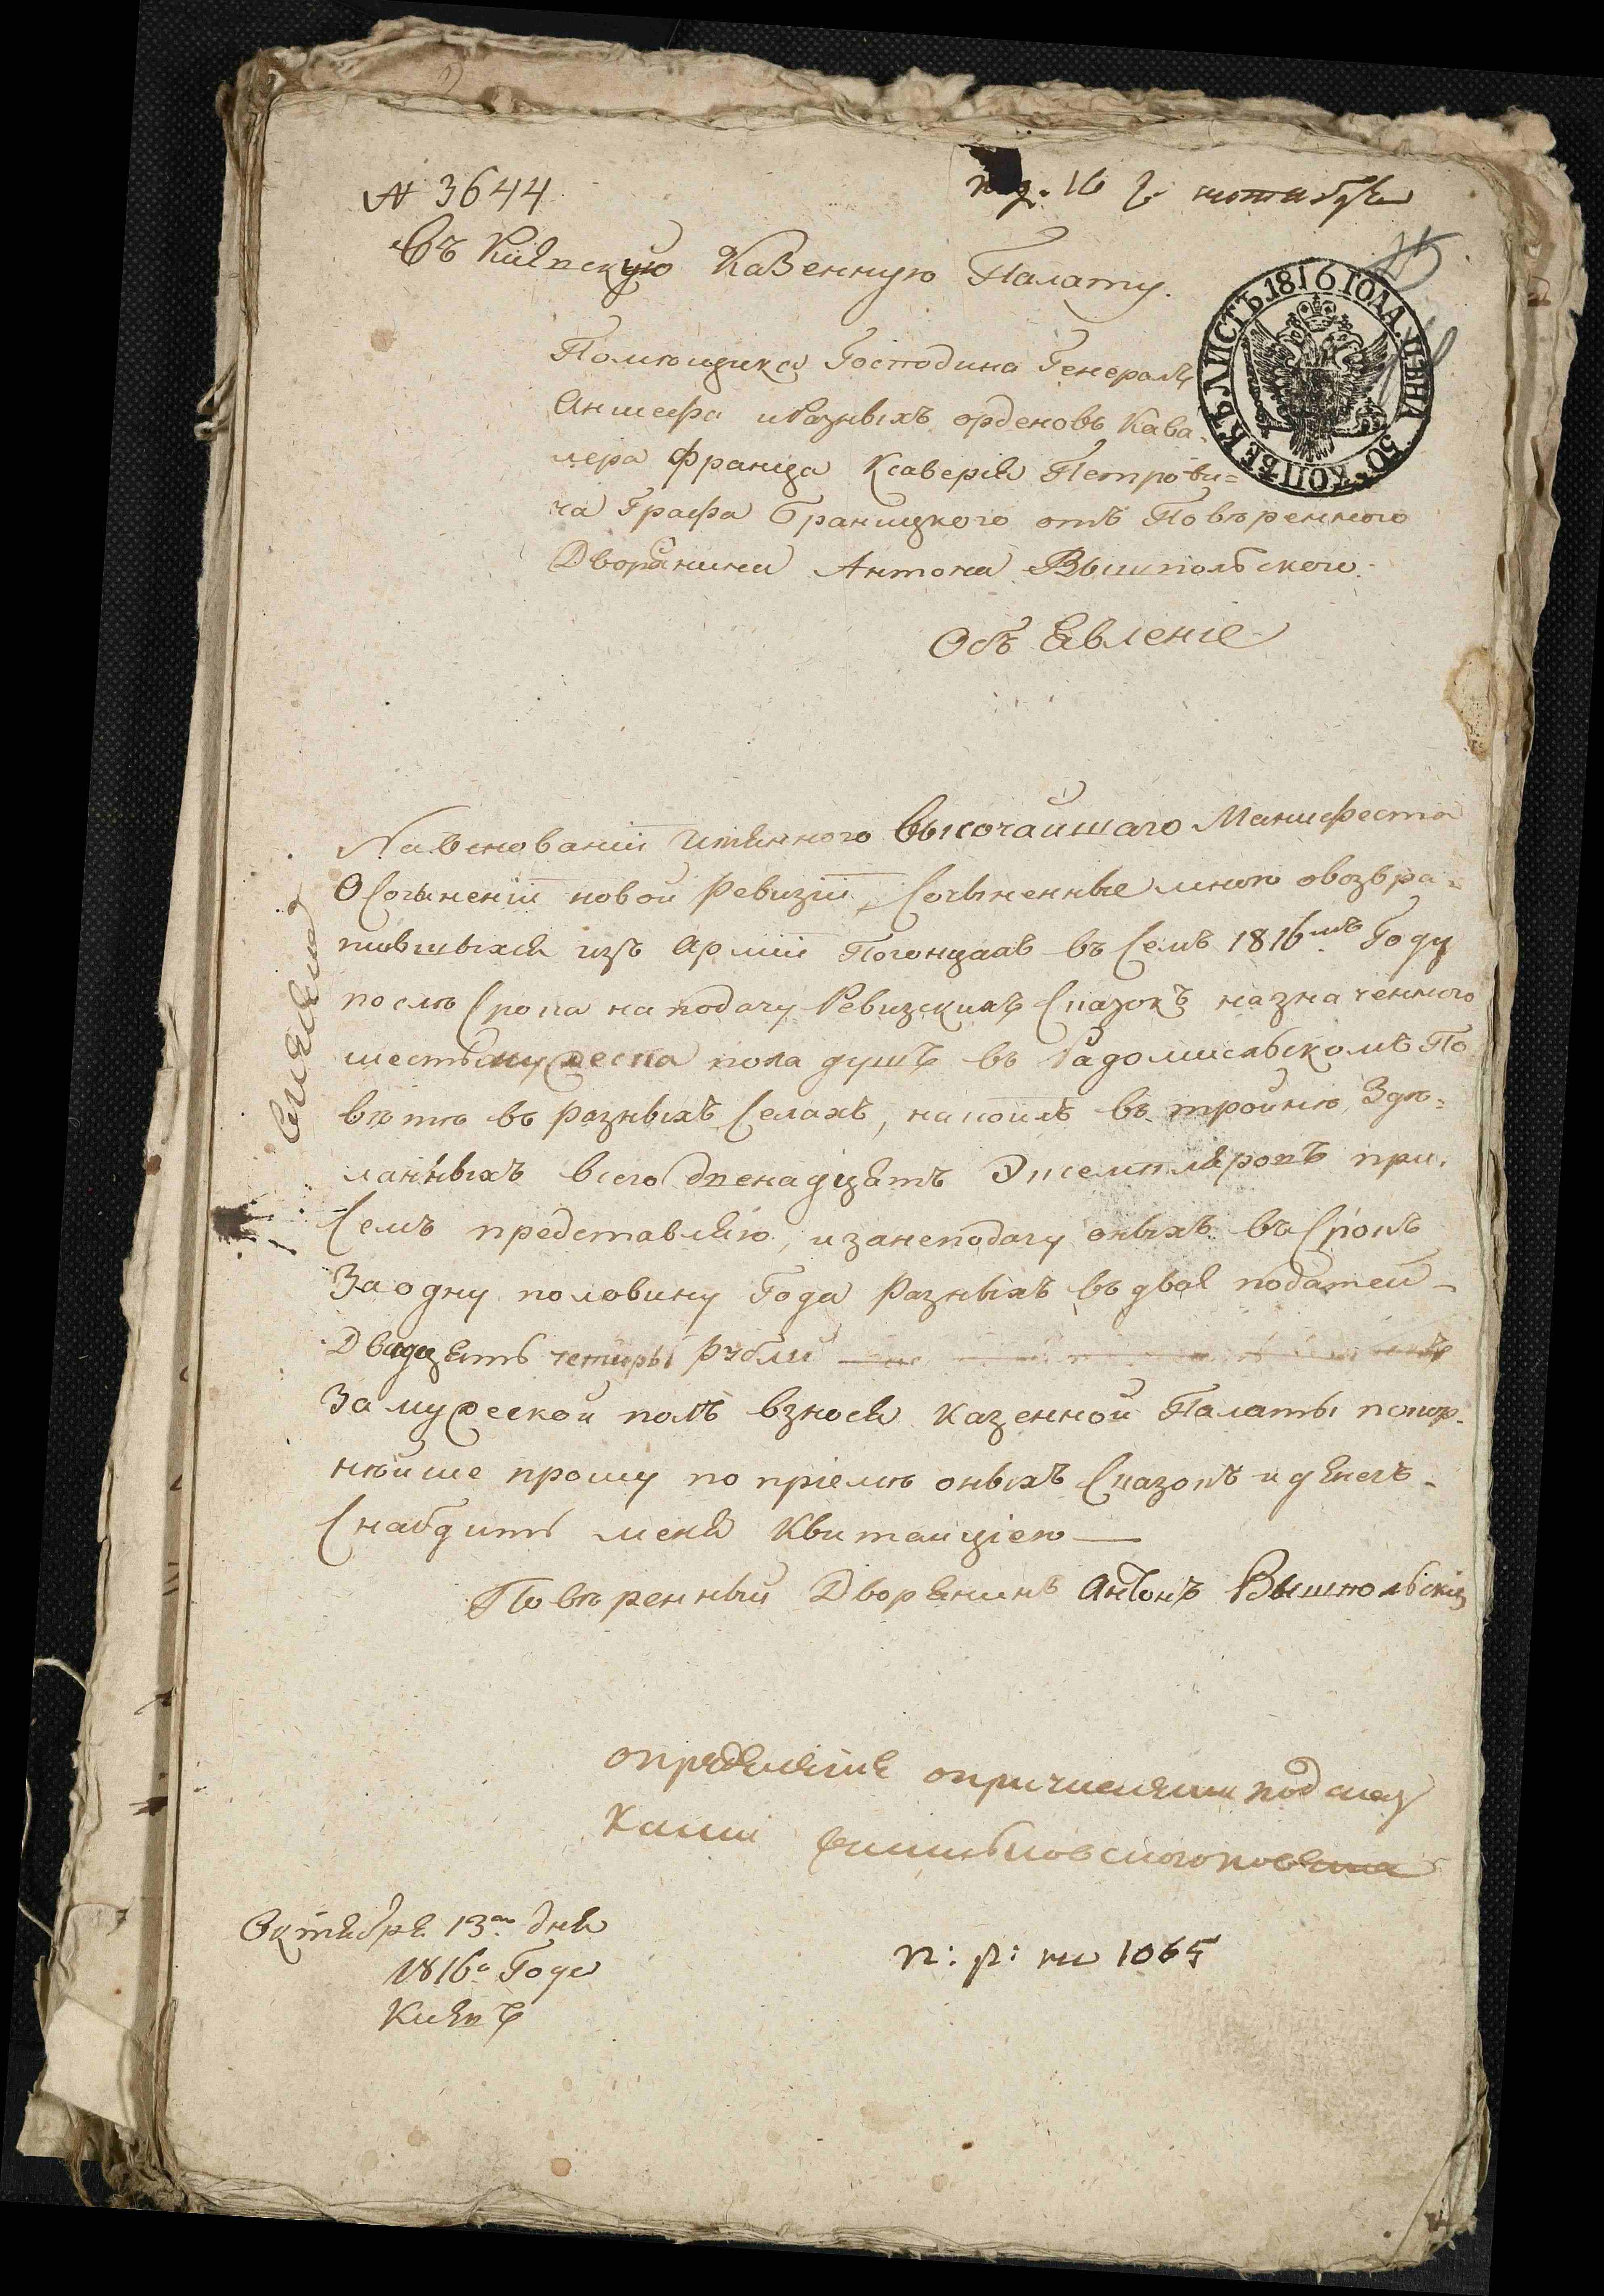 № 3644
под. 16 октября
Въ Кіевскую Казенную Палату.
ЛИСТЪ 1816 ГОДА. ЦѢНА 50 КОПѢЕКЪ
Помѣщика Господина Генералъ
Аншефа иразныхъ орденовъ Кава-
лера Франца Ксаверія Петрови=
ча Графа Браницкого отъ Повѣренного
Дворянина Антона Вышпольского.
Объ Явленіе
Наоснованіи имянного Высочайшаго Манифеста
Осочиненіи новой Ревизіи, Сочиненные мною овозвра=
тившихся изъ Арміи Погонцахъ въ Семъ 1816мъ Году
послѣ Срока на подачу Ревизскихъ Сказокъ назначенного
шесть мужеска пола душъ въ Радомисльскомъ По
вѣтѣ въ разныхъ Селахъ, накоихъ въ тройнѣ Здѣ=
ланныхъ всего двенадцать Экземпляровъ при
Семъ представляю, изанеподачу оныхъ въ Срокъ
За одну половину Года разныхъ въ двое податей
Двадцать четыры рубли
За мужеской полъ взнося Казенной Палаты покор-
нѣйше прошу по пріемѣ оныхъ Сказокъ и денегъ
Снабдить меня Квитанціею
Повѣренный Дворянинъ Антонъ Вышпольскій
опредѣленіе опричисленіи под
Октября 13го дня
1816о Года
Кіевъ
п: р: на 1065